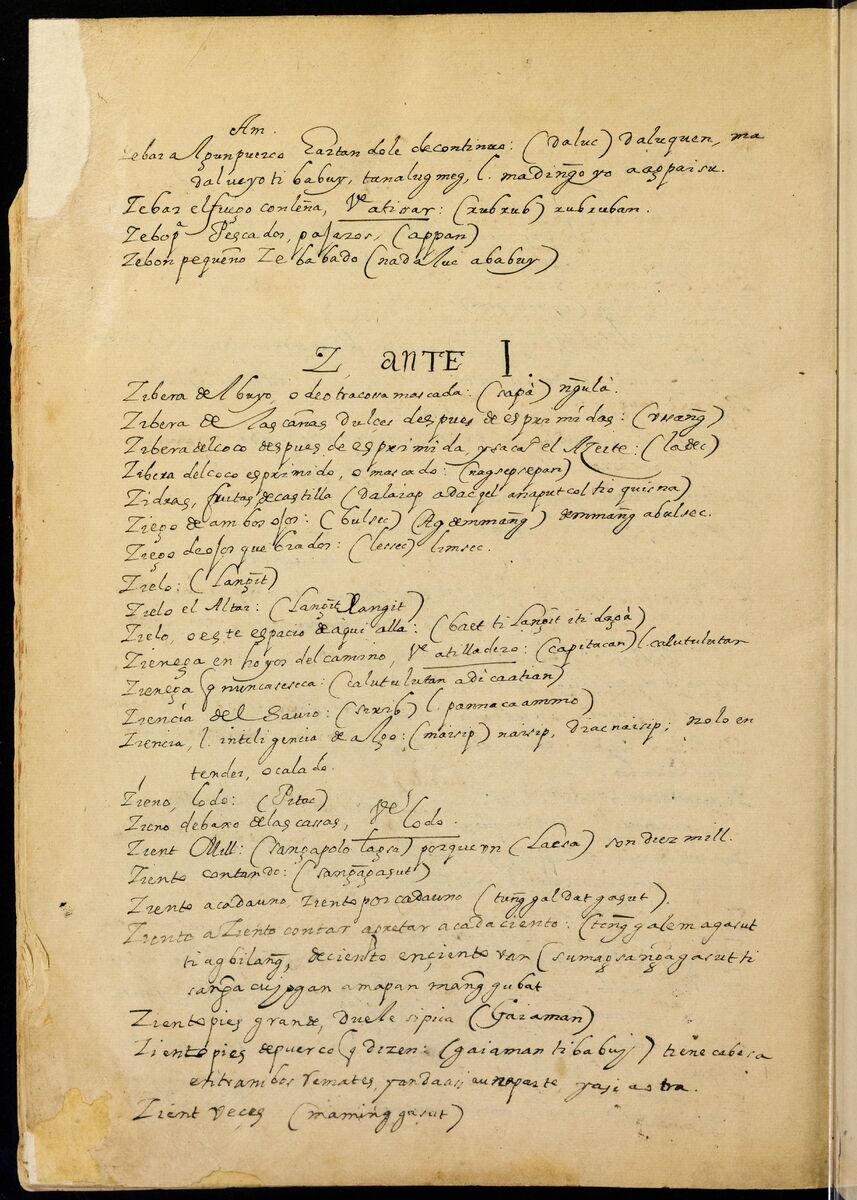 Am.
Zebar algun puerco hartandole decontinuo: (daluc) daluquen, ma
dalueyo ti babuy, tanalugmeg, l. madingo yo
Zebar el fuego con leña, Ve atisar: (xubxub) xubxuban.
Zebo pa Pescados, pajaros, (appan)
Zebon pequeño Zebabado (nadaluc ababuy)
Z, ANTE I.
Zibera del buyo, o de otra cosa mascada: (sapà) ng̃ulà.
Zibera de las cañas dulces despues de esprimidas: (vsang̃)
Zibera del coco despues de esprimida, y sacado el Azeite: (ladec)
Zibera del coco esprimido, o mascado: (nagsepsepan)
Zidras, frutas de castilla (dalaiap adacqel anaputcoltio quisna)
Ziego de ambos ojos: (bulsec) (Agdemmang̃) demmang̃ abulsec.
Ziego de ojos quebrados: (lessec) limsec.
Zielo: (Lang̃it)
Zielo el Altar: (Lang̃it Langit)
Zielo, o este espacio de aqui alla: (baet ti Lang̃it iti dagà)
Zienega en hoyos del camino, Ve atilladero: (capitacan) l. calutulutan
Zienega q nunca seseca: (calutulutan adicaatian)
Ziencia del Savio: (sirib) l. pannacaammo)
Ziencia, l. inteligencia de algo: (naisip) naisip, diacnaisip; no lo en
tendi, o calado.
Zieno, lodo: (Pitac)
Zieno debaxo de las cassas, Ve lodo.
Zient Mill: (sang̃apolo lacsa) porque vn (Lacsa) son diez mill.
Ziento contando: (sang̃agasut)
Ziento acadauno, Ziento por cadauno (tung̃gal dat gasut).
Ziento a Ziento contar apretar acada ciento: (tung̃galem agasut
ti agbilang̃, deciento en ciento van (sumagsang̃agasut ti
sang̃acujogan amapan mang̃gubat
Zientopies grande, duele si pica (Gaiaman)
Zientopies de puerco q dizen: (gaiaman ti babuy) tiene cabesa
en tranbos remates, y anda assi a una parte, y assi a otra.
Zient veces (maming̃gasut)